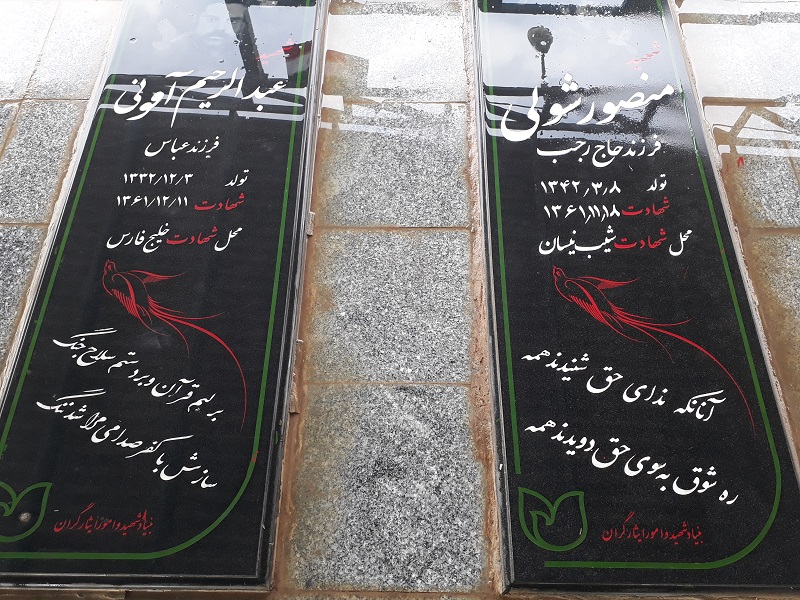 شهید
منصور شولی
فرزند حاج رجب
تولد ۱۳۴۲/۳/۸
شهادت ۱۳۶۱/۱۱/۱۸
محل شهادت شیب نیسان
آنانکه ندای حق شنیدند همه
ره شوق به سوی حق دویدند همه
بنیاد شهید و امور ایثارگران
شهید
عبدالرحیم آمونی
فرزند عباس
تولد ۱۳۳۲/۱۲/۳
شهادت ۱۳۶۱/۱۲/۱۱
محل شهادت خلیج فارس
بر لبم قرآن و بر دستم سلاح جنگ
سازش با کفر صدامی مرا شد ننگ
بنیاد شهید و امور ایثارگران